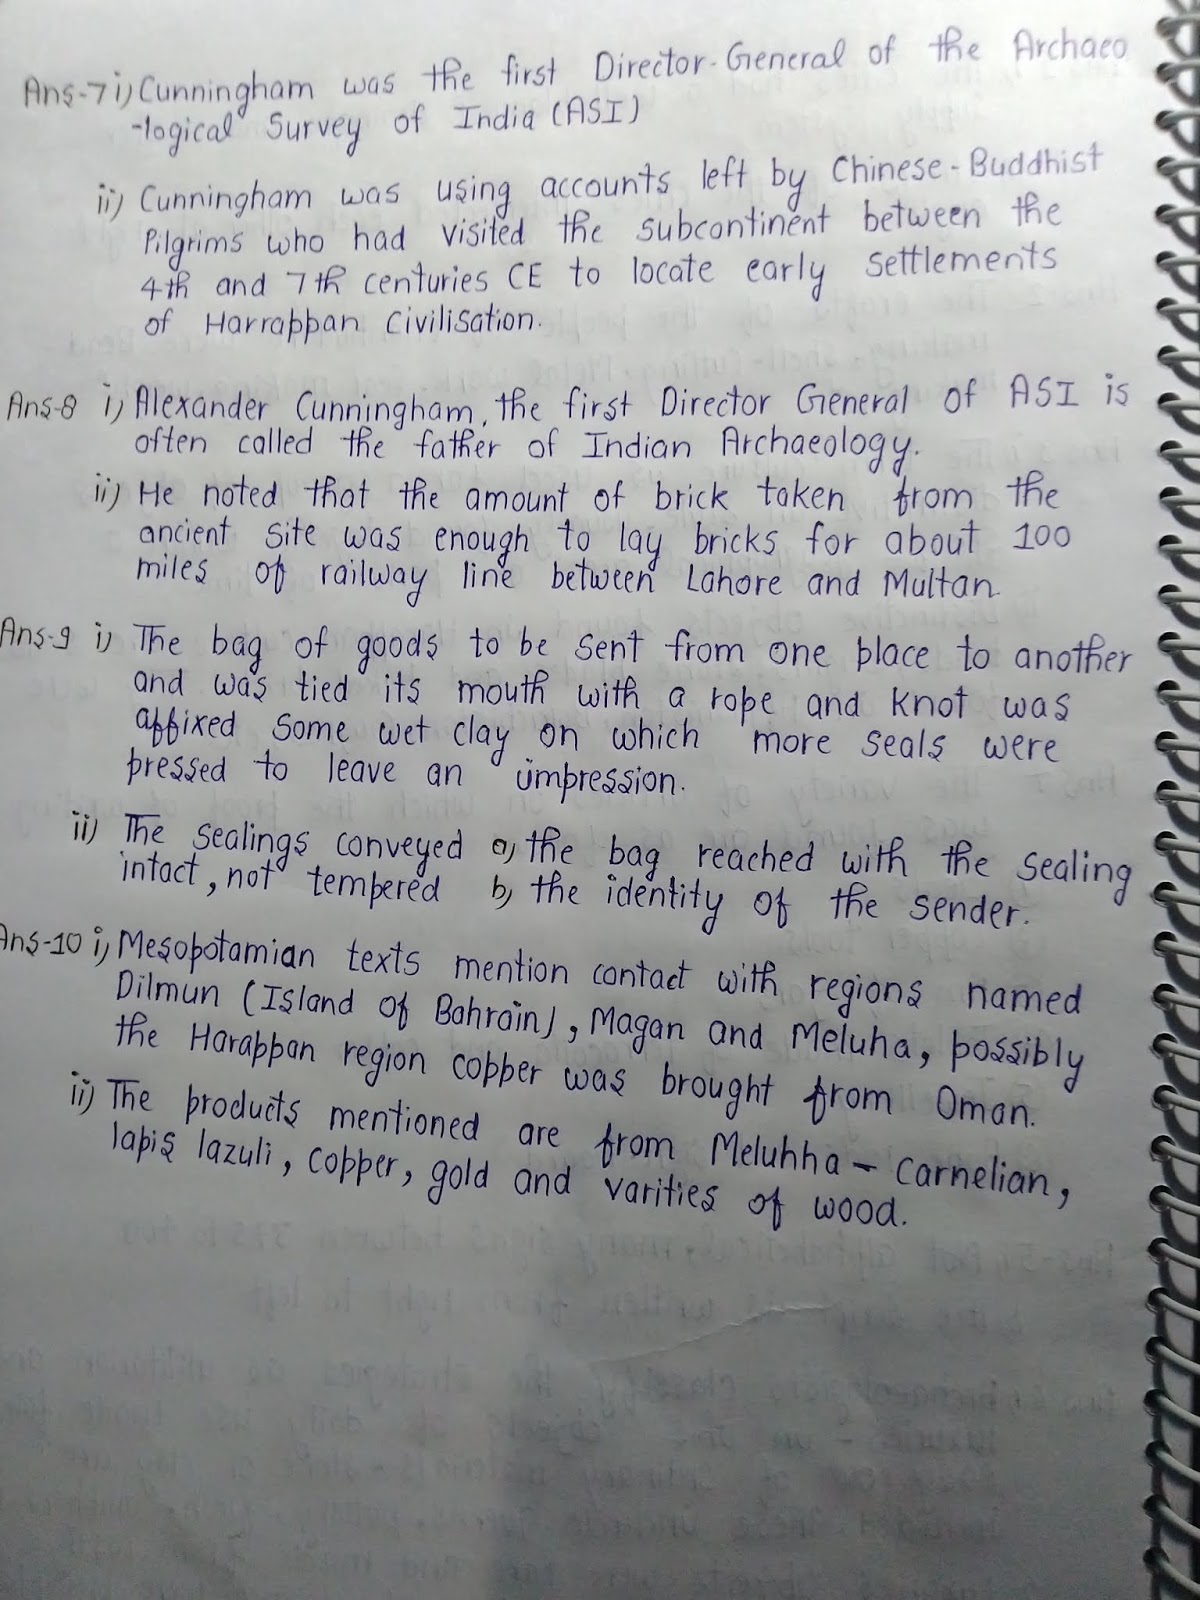 Ans-7 i) Cunningham was the first Director-General of the Archaeo
-logical Survey of India (ASI)
ii) Cunningham was using accounts left by Chinese-Buddhist
Pilgrims who had visited the subcontinent between the
4th and 7th centuries CE to locate early settlements
of Harrappan Civilisation.
Ans-8 i) Alexander Cunningham, the first Director General of ASI is
often called the father of Indian Archaeology.
ii) He noted that the amount of brick taken from the
ancient site was enough to lay bricks for about 100
miles of railway line between Lahore and Multan
Ans-9 i) The bag of goods to be sent from one place to another
and was tied its mouth with a rope and knot was
affixed some wet clay on which more seals were
pressed to leave an impression.
ii) The sealings conveyed a) the bag reached with the sealing
intact, not tempered b) the identity of the sender.
Ans-10 i) Mesopotamian texts mention contact with regions named
Dilmun (Island of Bahrain), Magan and Meluha, possibly
the Harappan region copper was brought from Oman.
ii) The products mentioned are from Meluhha - carnelian,
lapis lazuli, copper, gold and varities of wood.